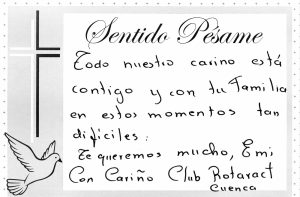 Sentido Pésame
Todo nuestro carino está
contigo y con tu Familia
en estos momentos tan
dificiles.
Te queremos mucho, Emi
Con Cariño Club Rotaract
Cuenca